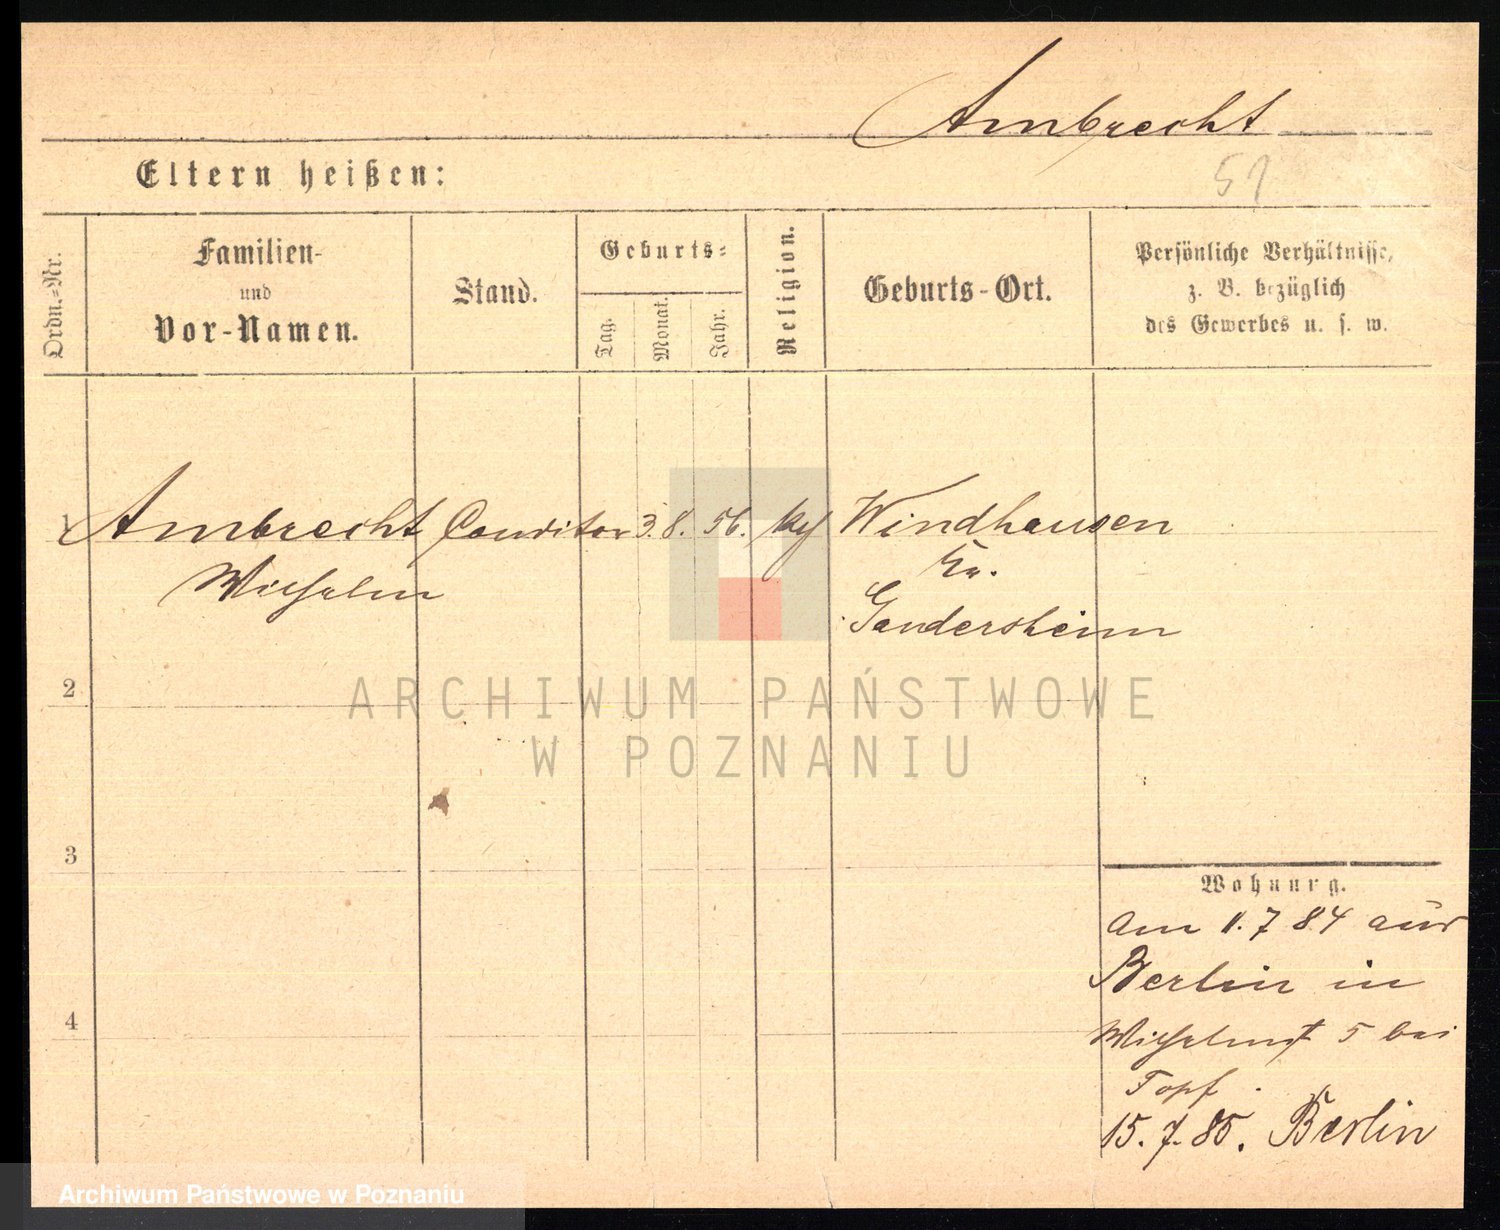 Ambrecht
Eltern heißen:
51
Ordn.-Nr.
Familien-
und
Vor-Namen.
Stand.
Geburts-
Tag.
Monat.
Jahr.
Religion.
Geburts-Ort.
Persönliche Verhältnisse,
z. B. bezüglich
des Gewerbes u. s. w.
1 Ambrecht Conditor 3. 8. 56. Windhausen
Wilhelm Kr.
Gandersheim
2
ARCHIWUM PAŃSTWOWE
W POZNANIU
3
Wohnung.
am 1. 7 84 aus
Berlin in
4
Wilhelmst 5 bei
Topf.
15. 7. 85. Berlin
Archiwum Państwowe w Poznaniu